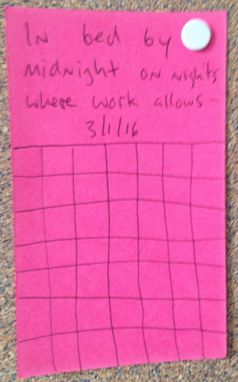 In bed by
midnight on nights
where work allows -
3/1/16